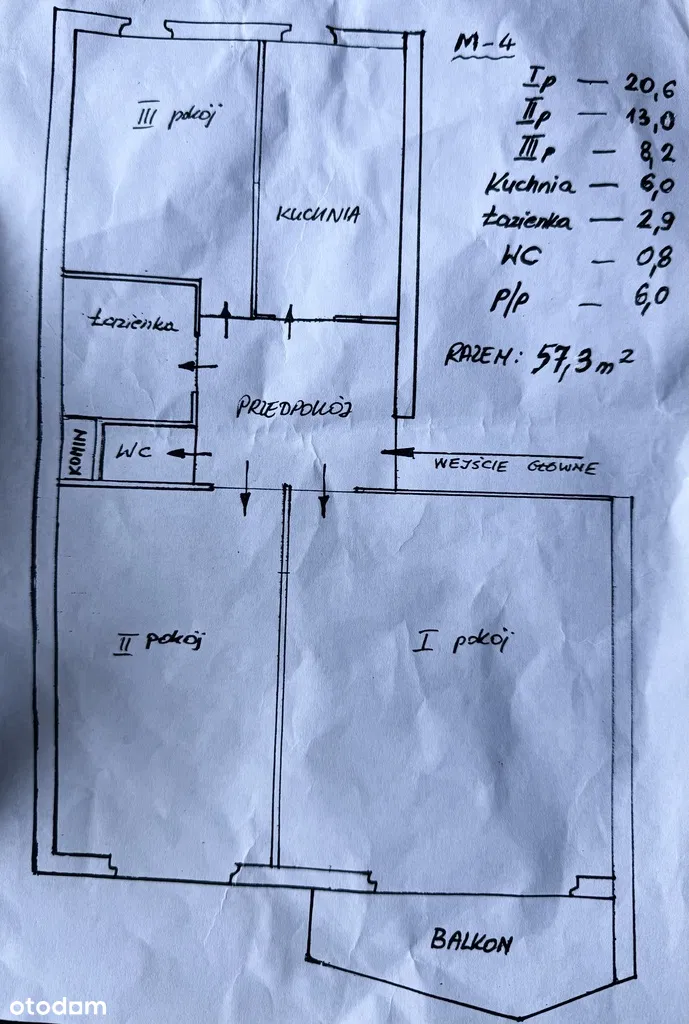 M-4
I p — 20,6
II p — 13,0
III p — 8,2
Kuchnia — 6,0
Łazienka — 2,9
WC — 0,8
P/p — 6,0
RAZEM: 57,3 m²
III pokój
KUCHNIA
Łazienka
PRZEDPOKÓJ
KOMIN
WC
WEJŚCIE GŁÓWNE
II pokój
I pokój
BALKON
otodom